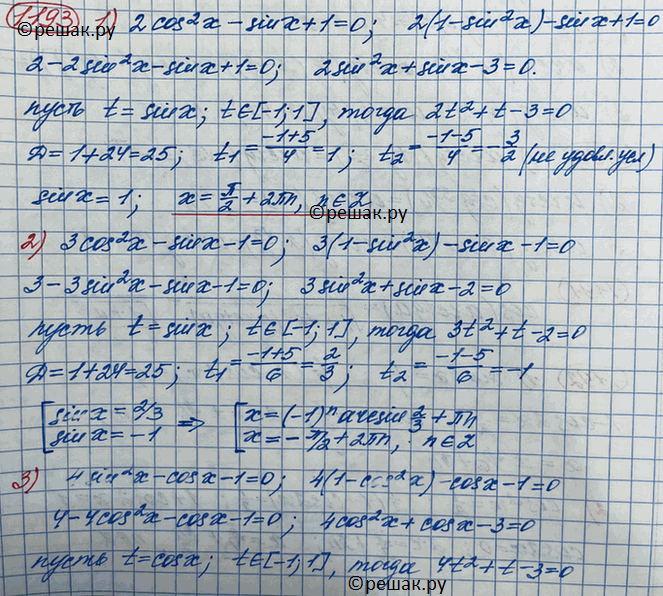 1193 1) 2cos²x - sinx + 1 = 0; 2(1 - sin²x) - sinx + 1 = 0
©решак.ру
2 - 2sin²x - sinx + 1 = 0; 2sin²x + sinx - 3 = 0.
пусть t = sinx; t∈[-1;1], тогда 2t² + t - 3 = 0
Д = 1 + 24 = 25; t₁ = (-1+5)/4 = 1; t₂ = (-1-5)/4 = -3/2 (не удовл. усл)
sinx = 1; x = π/2 + 2πn, n∈Z
©решак.ру
2) 3cos²x - sinx - 1 = 0; 3(1 - sin²x) - sinx - 1 = 0
3 - 3sin²x - sinx - 1 = 0; 3sin²x + sinx - 2 = 0
пусть t = sinx; t∈[-1;1], тогда 3t² + t - 2 = 0
Д = 1 + 24 = 25; t₁ = (-1+5)/6 = 2/3; t₂ = (-1-5)/6 = -1
[sinx = 2/3 ⇒ [x = (-1)ⁿ arcsin 2/3 + πn
sinx = -1 x = -π/2 + 2πn, n∈Z
3) 4sin²x - cosx - 1 = 0; 4(1 - cos²x) - cosx - 1 = 0
4 - 4cos²x - cosx - 1 = 0; 4cos²x + cosx - 3 = 0
пусть t = cosx; t∈[-1;1], тогда 4t² + t - 3 = 0
©решак.ру